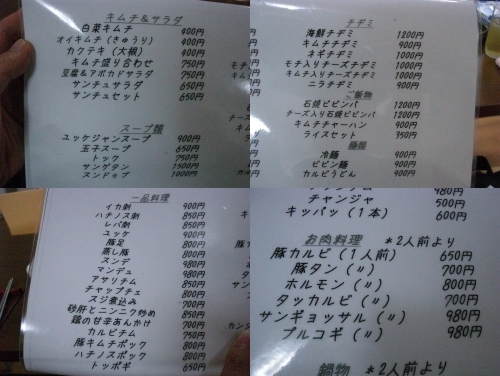 キムチ&サラダ
白菜キムチ 400円
オイキムチ(きゅうり) 400円
カクテキ(大根) 400円
キムチ盛り合わせ 750円
豆腐&アボカドサラダ 750円
サンチュサラダ 650円
サンチュセット 650円
スープ類
ユッケジャンスープ 900円
玉子スープ 650円
トック 750円
サンゲタン 1500円
スンドゥブ 1000円
チヂミ
海鮮チヂミ 1200円
キムチチヂミ 900円
ネギチヂミ 1000円
モチ入りチーズチヂミ 1000円
キムチ入りチーズチヂミ 1000円
ニラチヂミ 900円
ご飯物
石焼ビビンバ 1200円
チーズ入り石焼ビビンバ 1200円
キムチチャーハン 900円
ライスセット 350円
麺類
冷麺 900円
ビビン麺 900円
カルビうどん 900円
一品料理
イカ刺 900円
ハチノス刺 850円
レバ刺 850円
ユッケ 900円
豚足 800円
蒸し豚 800円
スンデ 900円
マンデュ 900円
アサリチム 750円
チャップチェ 800円
スジ煮込み 700円
砂肝とニンニク炒め 850円
鶏の甘辛あんかけ 700円
カルビチム 750円
豚キムチポック 800円
ハチノスポック 800円
トッポギ 650円
980円
チャンジャ 500円
キッパッ(1本) 600円
お肉料理 *2人前より
豚カルビ(1人前) 650円
豚タン(〃) 700円
ホルモン(〃) 800円
タッカルビ(〃) 700円
サンギョッサル(〃) 980円
プルコギ(〃) 980円
鍋物 *2人前より